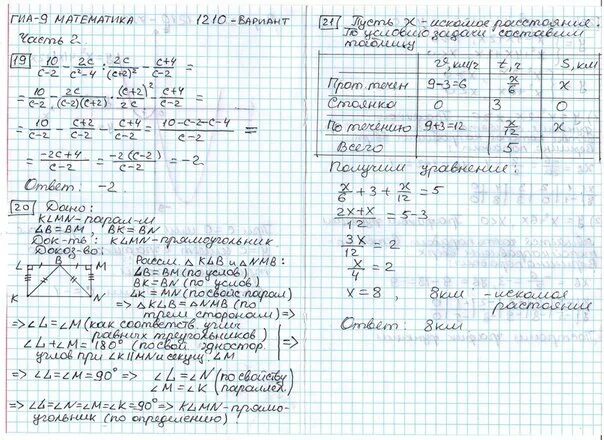 ГИА-9 МАТЕМАТИКА 1210-ВАРИАНТ
Часть 2.
19 10/(c-2) - 2c/(c²-4) : 2c/(c+2)² - (c+4)/(c-2) =
= 10/(c-2) - 2c/((c-2)(c+2)) · (c+2)²/2c - (c+4)/(c-2) =
= 10/(c-2) - (c+2)/(c-2) - (c+4)/(c-2) = (10-c-2-c-4)/(c-2) =
= (-2c+4)/(c-2) = -2(c-2)/(c-2) = -2
Ответ: -2.
20 Дано:
KLMN-парал-м
LB=BM, BK=BN
Док-ть: KLMN-прямоугольник
Доказ-во:
L B M
K N
Рассм △ KLB и △NMB:
LB=BM (по услов)
BK=BN (по услов)
LK=MN (по свойс парал)
⇒ △KLB=△NMB (по
трем сторонам) ⇒
⇒ ∠L=∠M (как соответств. углы
равных треугольников)
∠L+∠M=180° (по свой. одностор.
углов при LK||MN и секущ. LM
⇒
⇒ ∠L=∠M=90° ⇒ ∠L=∠N (по свойству
∠M=∠K параллел)
⇒ ∠L=∠N=∠M=∠K=90° ⇒ KLMN-прямо-
угольник (по определению)
21 Пусть x-искомое расстояние.
По условию задачи составим
таблицу
V, км/ч t, ч S, км
Прот. течен 9-3=6 x/6 x
Стоянка 0 3 0
По течению 9+3=12 x/12 x
Всего 5
Получим уравнение:
x/6 + 3 + x/12 = 5
(2x+x)/12 = 5-3
3x/12 = 2
x/4 = 2
x = 8, 8км -искомое
расстояние
Ответ: 8км.